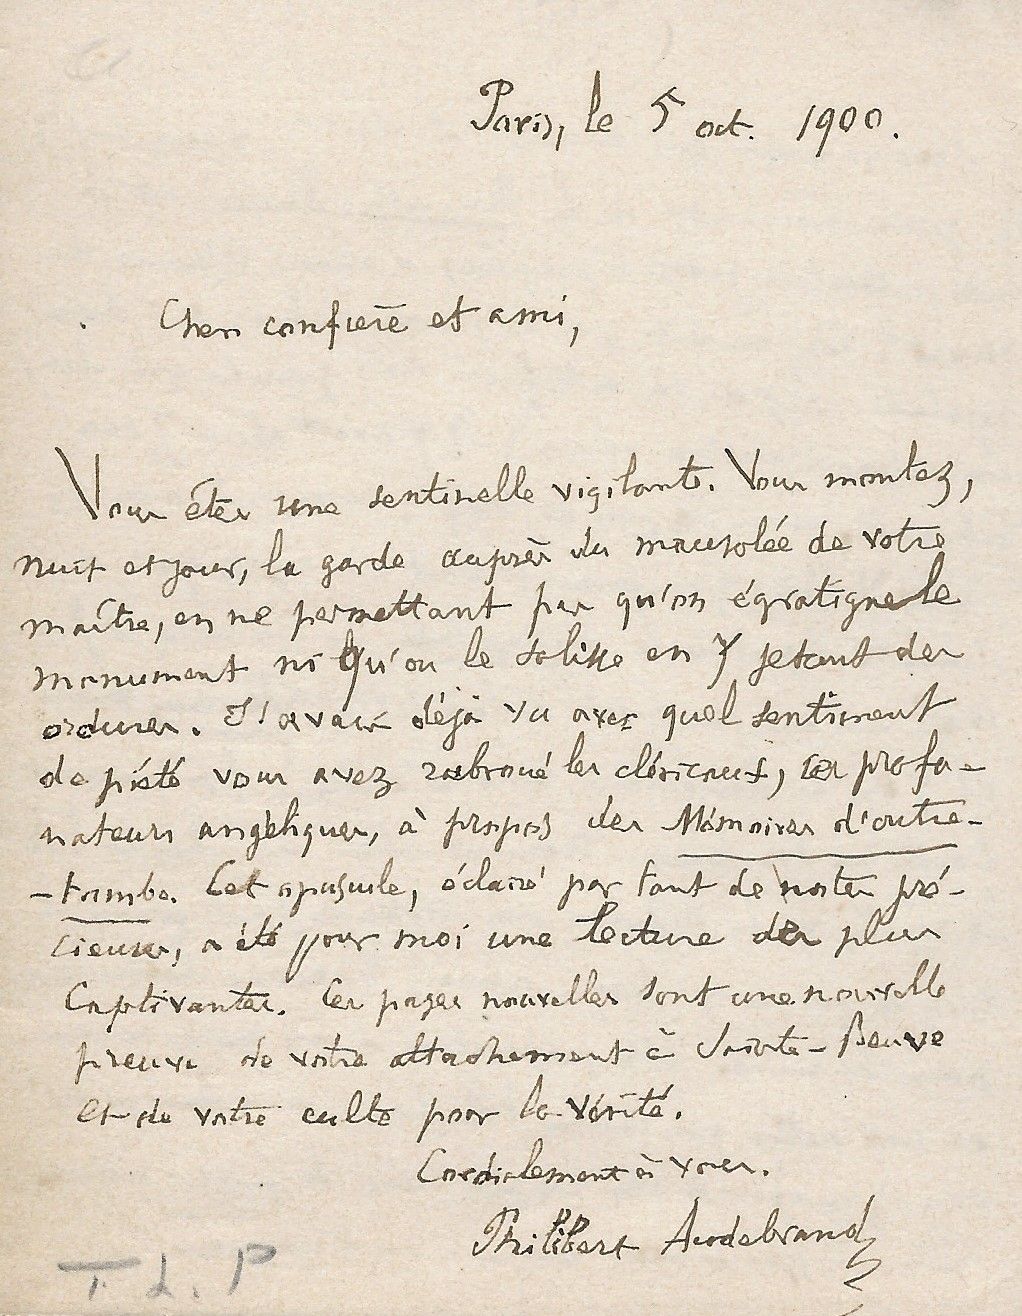 Paris, le 5 oct. 1900.
Cher confrère et ami,
Vous êtes une sentinelle vigilante. Vous montez,
nuit et jour, la garde auprès du mausolée de votre
maître, en ne permettant pas qu'on égratigne le
monument ni qu'on le salisse en y jetant des
ordures. J'avais déjà vu avec quel sentiment
de piété vous avez rabroué les cléricaux, ces profa-
nateurs angéliques, à propos des Mémoires d'outre-
-tombe. Cet opuscule, éclairé par tant de notes pré-
cieuses, a été pour moi une lecture des plus
captivantes. Ces pages nouvelles sont une nouvelle
preuve de votre attachement à Sainte-Beuve
et de votre culte pour la vérité.
Cordialement à vous.
Philibert Audebrand
T. L. P